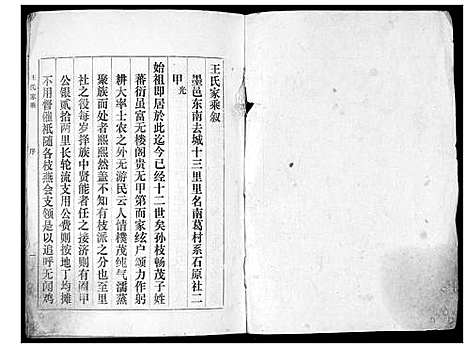 王氏家乘叙
墨邑东南去城十三里里名南葛村系石原社二
甲光
始祖即居於此迄今已经十二世矣孙枝畅茂子姓
蕃衍虽富无楼阁贵无甲第而家弦户颂力作躬
耕大率士农之外无游民云人情朴茂纯气濡蒸
聚族而处者熙熙然盖不知有枝派之分也至里
社之役每岁择族中贤能者任之接济则有阖甲
公银贰拾两里长轮流支用公费则按地丁均摊
不用督催祗随各枝燕会支领是以追呼无闻鸡
王氏家乘
序
一